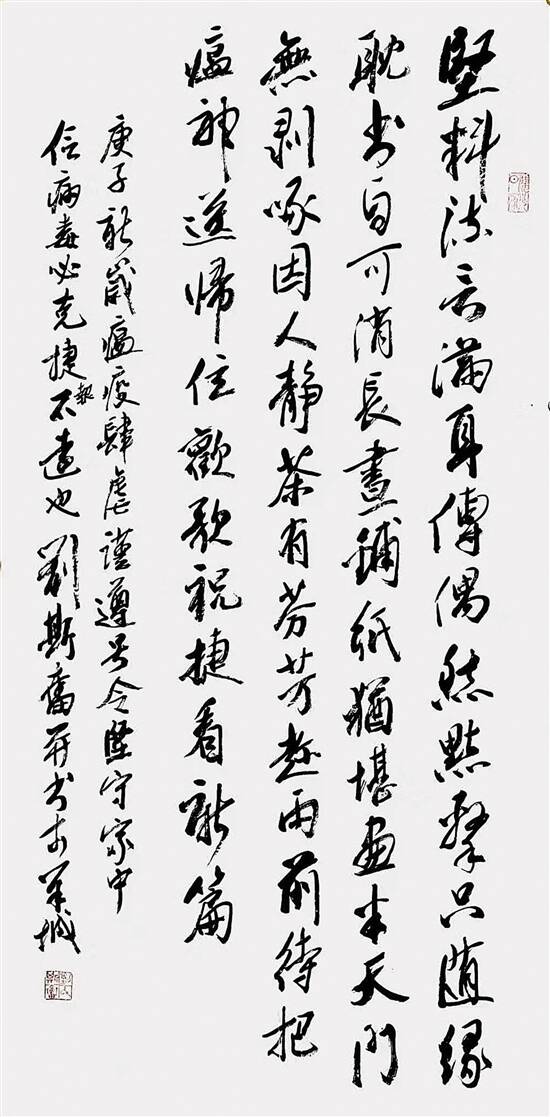 堅料流言滿耳傳偶然點擊只隨緣
耽書自可消長晝鋪紙猶堪畫半天門
無剝啄因人靜茶有芬芳趁雨前待把
瘟神送歸住歡歌祝捷看新篇
庚子新歲瘟疫肆虐謹遵号令堅守家中
信病毒必克捷報不遠也劉斯奮并書於羊城